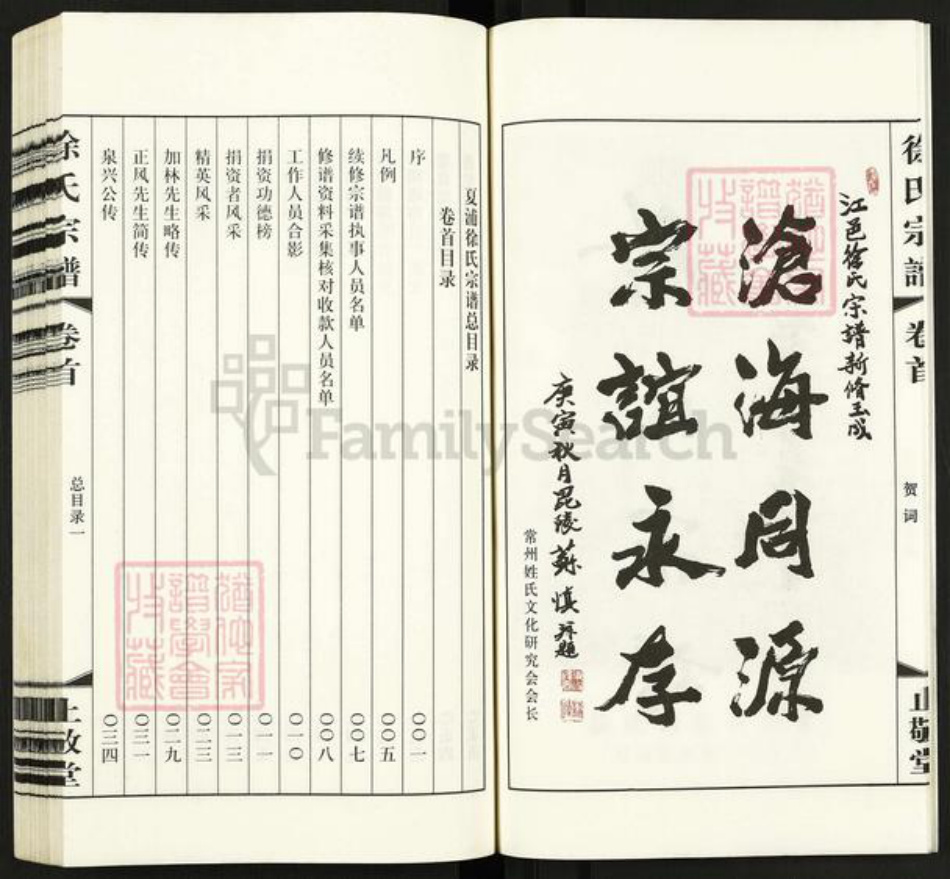 徐氏宗譜
卷首
贺词
止敬堂
江邑徐氏宗譜新脩玉成
滄海同源
宗誼永存
庚寅秋月毘陵蘇慎拜題
常州姓氏文化研究会会长
夏浦徐氏宗谱总目录
卷首目录
序 〇〇一
凡例 〇〇五
续修宗谱执事人员名单 〇〇七
修谱资料采集核对收款人员名单 〇〇八
工作人员合影 〇一〇
捐资功德榜 〇一一
捐资者风采 〇一三
精英风采 〇二三
加林先生略传 〇二九
正风先生简传 〇三一
泉兴公传 〇三四
徐氏宗譜
卷首
总目录一
止敬堂
譜學會
收藏
FamilySearch